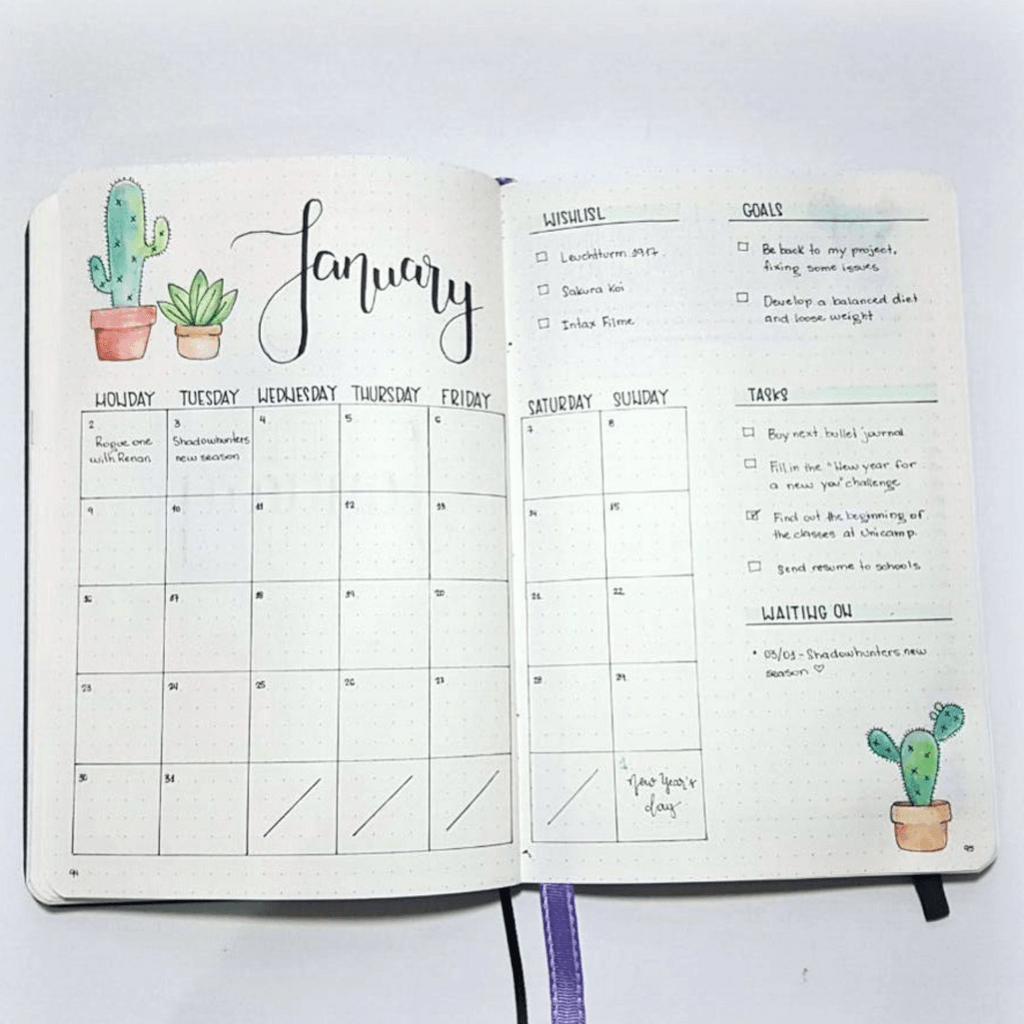 January
MONDAY TUESDAY WEDNESDAY THURSDAY FRIDAY
2 3 4 5 6
Rogue one
with Renan
Shadowhunters
new season
9 10 11 12 13
16 17 18 19 20
23 24 25 26 27
30 31
94
SATURDAY SUNDAY
7 8
14 15
21 22
28 29
1
New Year's
day
WISHLIST
Leuchtturm 1917
Sakura Koi
Intax Filme
GOALS
Be back to my project,
fixing some issues
Develop a balanced diet
and loose weight
TASKS
Buy next bullet journal
Fill in the "New year for
a new you" challenge
Find out the beginning of
the classes at Unicamp.
Send resume to schools
WAITING ON
• 03/01 - Shadowhunters new
season ♡
95